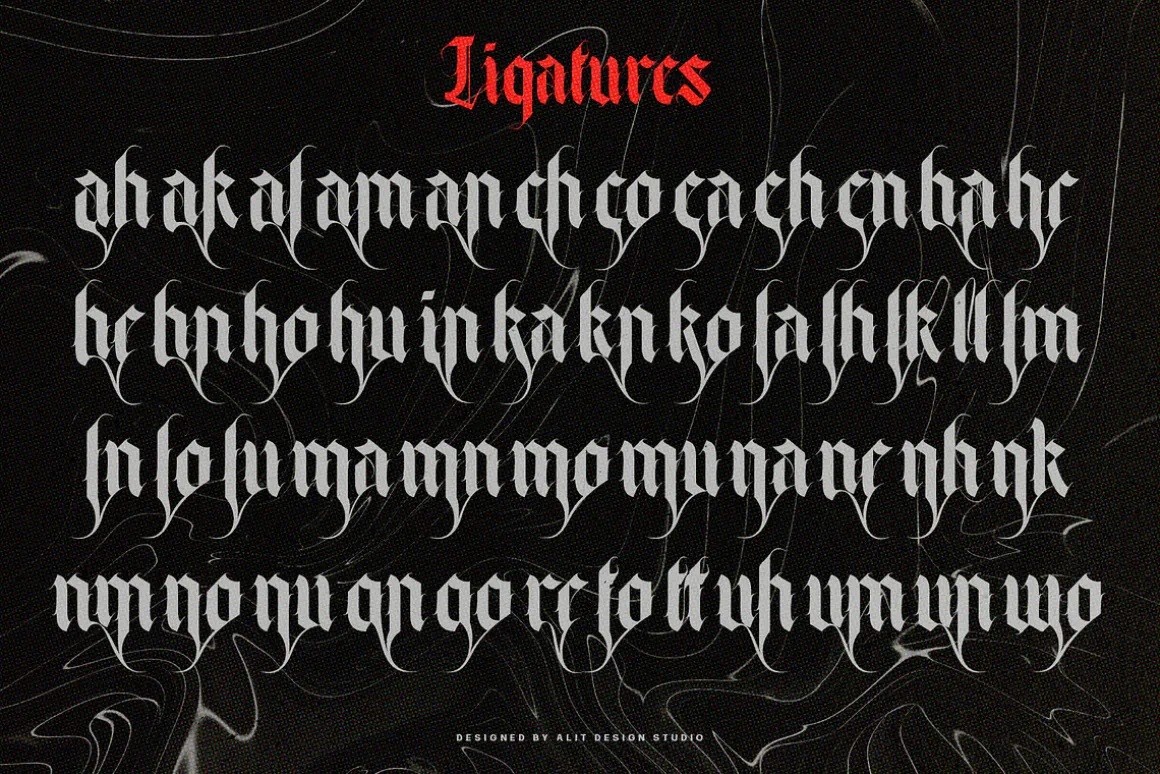 Ligatures
ah ak al am an ch co ea eh en ha he
he hn ho hu in ka kn ko la lh lk ll lm
ln lo lu ma mn mo mu na ne nh nk
nm no nu qn qo re to tt uh um un wo
DESIGNED BY ALIT DESIGN STUDIO